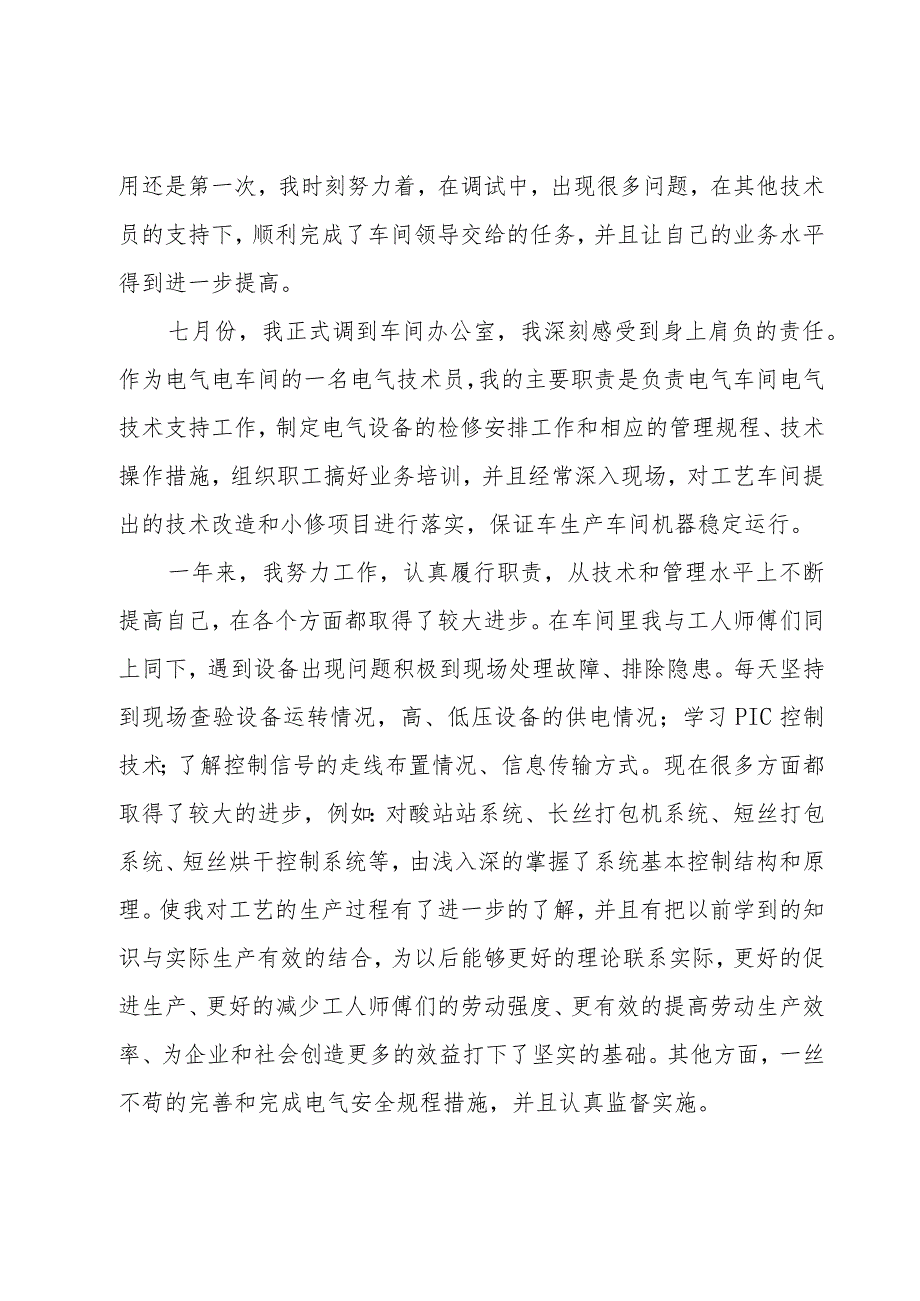 用还是第一次，我时刻努力着，在调试中，出现很多问题，在其他技术
员的支持下，顺利完成了车间领导交给的任务，并且让自己的业务水平
得到进一步提高。
七月份，我正式调到车间办公室，我深刻感受到身上肩负的责任。
作为电气电车间的一名电气技术员，我的主要职责是负责电气车间电气
技术支持工作，制定电气设备的检修安排工作和相应的管理规程、技术
操作措施，组织职工搞好业务培训，并且经常深入现场，对工艺车间提
出的技术改造和小修项目进行落实，保证车生产车间机器稳定运行。
一年来，我努力工作，认真履行职责，从技术和管理水平上不断
提高自己，在各个方面都取得了较大进步。在车间里我与工人师傅们同
上同下，遇到设备出现问题积极到现场处理故障、排除隐患。每天坚持
到现场查验设备运转情况，高、低压设备的供电情况；学习 PIC 控制
技术；了解控制信号的走线布置情况、信息传输方式。现在很多方面都
取得了较大的进步，例如：对酸站站系统、长丝打包机系统、短丝打包
系统、短丝烘干控制系统等，由浅入深的掌握了系统基本控制结构和原
理。使我对工艺的生产过程有了进一步的了解，并且有把以前学到的知
识与实际生产有效的结合，为以后能够更好的理论联系实际，更好的促
进生产、更好的减少工人师傅们的劳动强度、更有效的提高劳动生产效
率、为企业和社会创造更多的效益打下了坚实的基础。其他方面，一丝
不苟的完善和完成电气安全规程措施，并且认真监督实施。